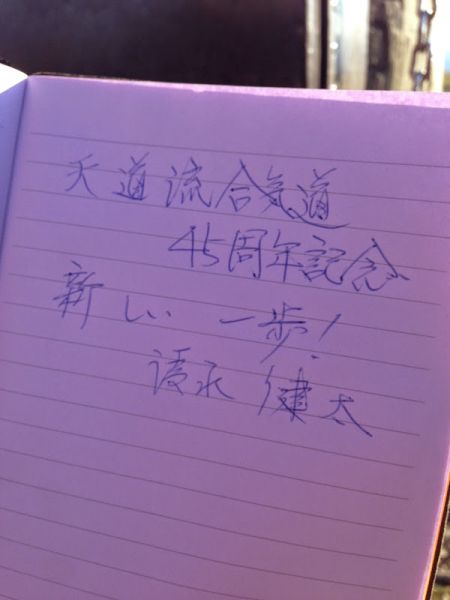 天道流合気道
45周年記念
新しい 一歩!
清水 健太